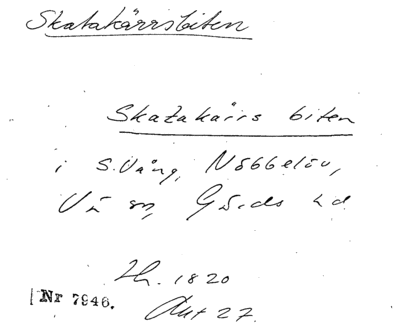 Skatakärrsbiten
Skatakärrs biten
i S. Vång, Nöbbelöv,
Vä sn, Gärds hd
1820
Nr 7946.
Akt 27.